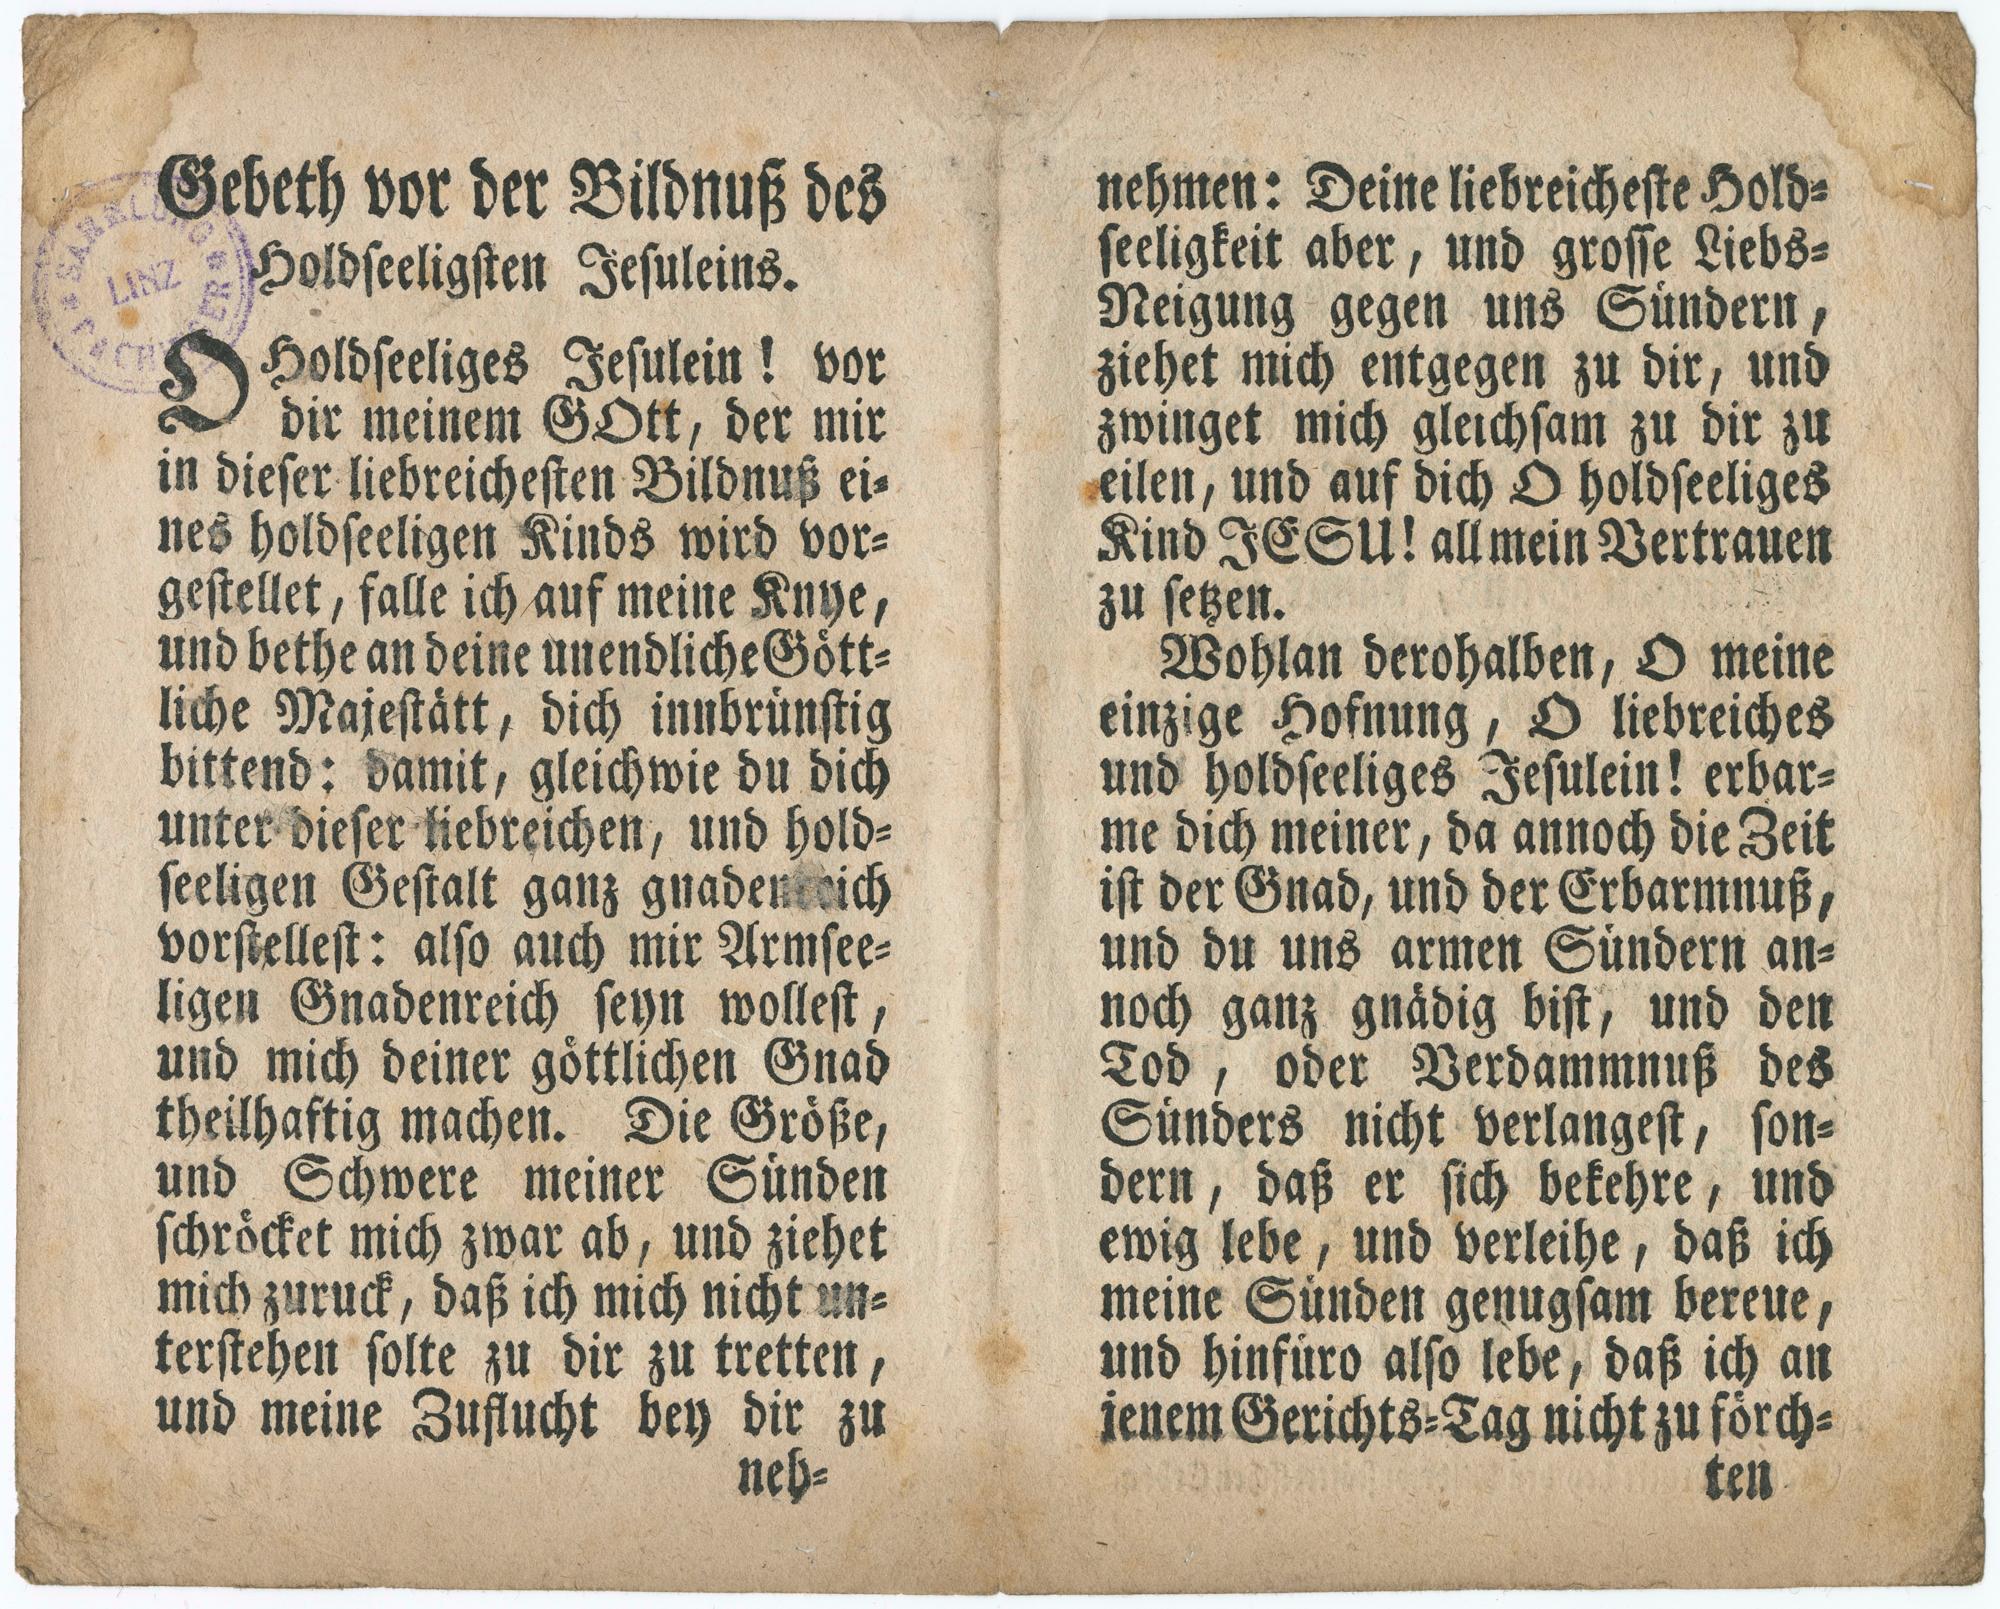 Gebeth vor der Bildnuß des
Holdseeligsten Jesuleins.
O Holdseeliges Jesulein! vor
dir meinem GOtt, der mir
in dieser liebreichesten Bildnuß ei-
nes holdseeligen Kinds wird vor-
gestellet, falle ich auf meine Knye,
und bethe an deine unendliche Gött-
liche Majestätt, dich innbrünstig
bittend: damit, gleichwie du dich
unter dieser liebreichen, und hold-
seeligen Gestalt ganz gnadenreich
vorstellest: also auch mir Armsee-
ligen Gnadenreich seyn wollest,
und mich deiner göttlichen Gnad
theilhaftig machen. Die Größe,
und Schwere meiner Sünden
schröcket mich zwar ab, und ziehet
mich zuruck, daß ich mich nicht un-
terstehen solte zu dir zu tretten,
und meine Zuflucht bey dir zu
neh-
LINZ
nehmen: Deine liebreicheste Hold-
seeligkeit aber, und grosse Liebs-
Neigung gegen uns Sündern,
ziehet mich entgegen zu dir, und
zwinget mich gleichsam zu dir zu
eilen, und auf dich O holdseeliges
Kind JESU! all mein Vertrauen
zu setzen.
Wohlan derohalben, O meine
einzige Hofnung, O liebreiches
und holdseeliges Jesulein! erbar-
me dich meiner, da annoch die Zeit
ist der Gnad, und der Erbarmnuß,
und du uns armen Sündern an-
noch ganz gnädig bist, und den
Tod, oder Verdammnuß des
Sünders nicht verlangest, son-
dern, daß er sich bekehre, und
ewig lebe, und verleihe, daß ich
meine Sünden genugsam bereue,
und hinfüro also lebe, daß ich an
jenem Gerichts-Tag nicht zu förch-
ten